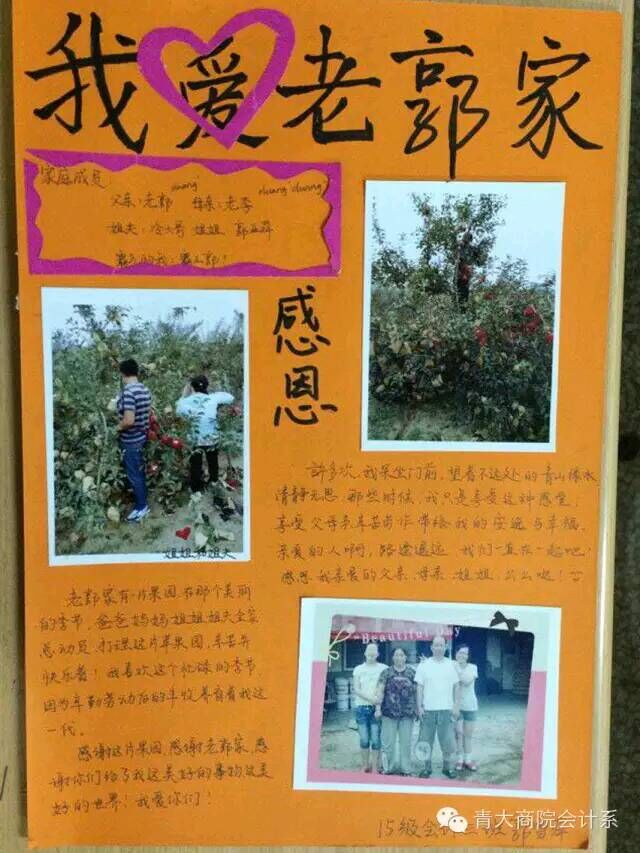 我爱老郭家
家庭成员
父亲:老郭 母亲:老李
姐夫: 姐姐
感恩
姐姐和姐夫
许多次,我呆坐门前,望着不远处的青山绿水
清静无思,那些时候,我只是享受这种感觉;
享受父母亲辛苦劳作带给我的安逸与幸福。
亲爱的人啊,路途遥远,我们一直在一起吧!
感恩我亲爱的父亲、母亲、姐姐、
老郭家有一片果园,在那个美丽
的季节,爸爸妈妈姐姐姐夫全家
总动员,打理这片苹果园,辛苦并
快乐着!我喜欢这个忙碌的季节,
因为辛勤劳动后的丰收养育着我这
一代。
感谢这片果园,感谢老郭家,感
谢你们给了我这美好的事物这美
好的世界!我爱你们!
Beautiful Day
15级会计二班
青大商院会计系